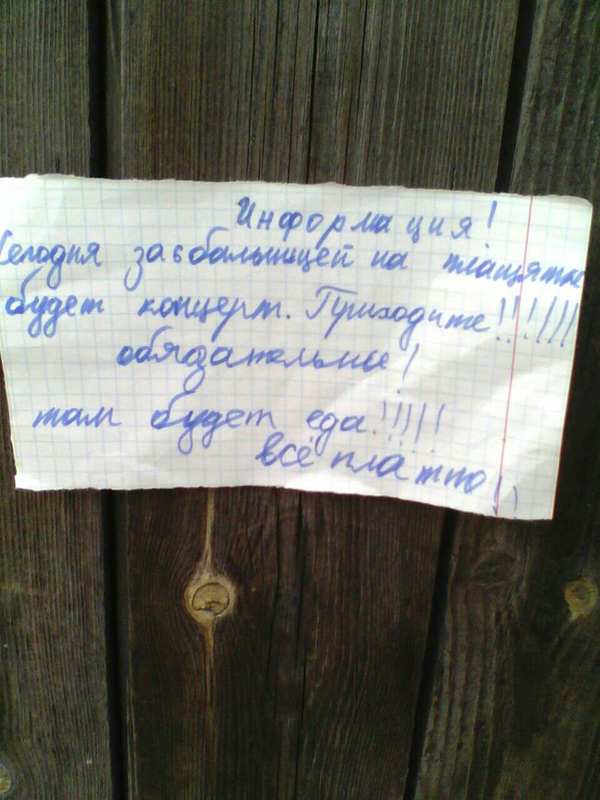 Информация!
Сегодня за вбальницей на плащятке
будет концерт. Приходите!!!!!!
обязательно!
там будет еда!!!!!
всё платно!!